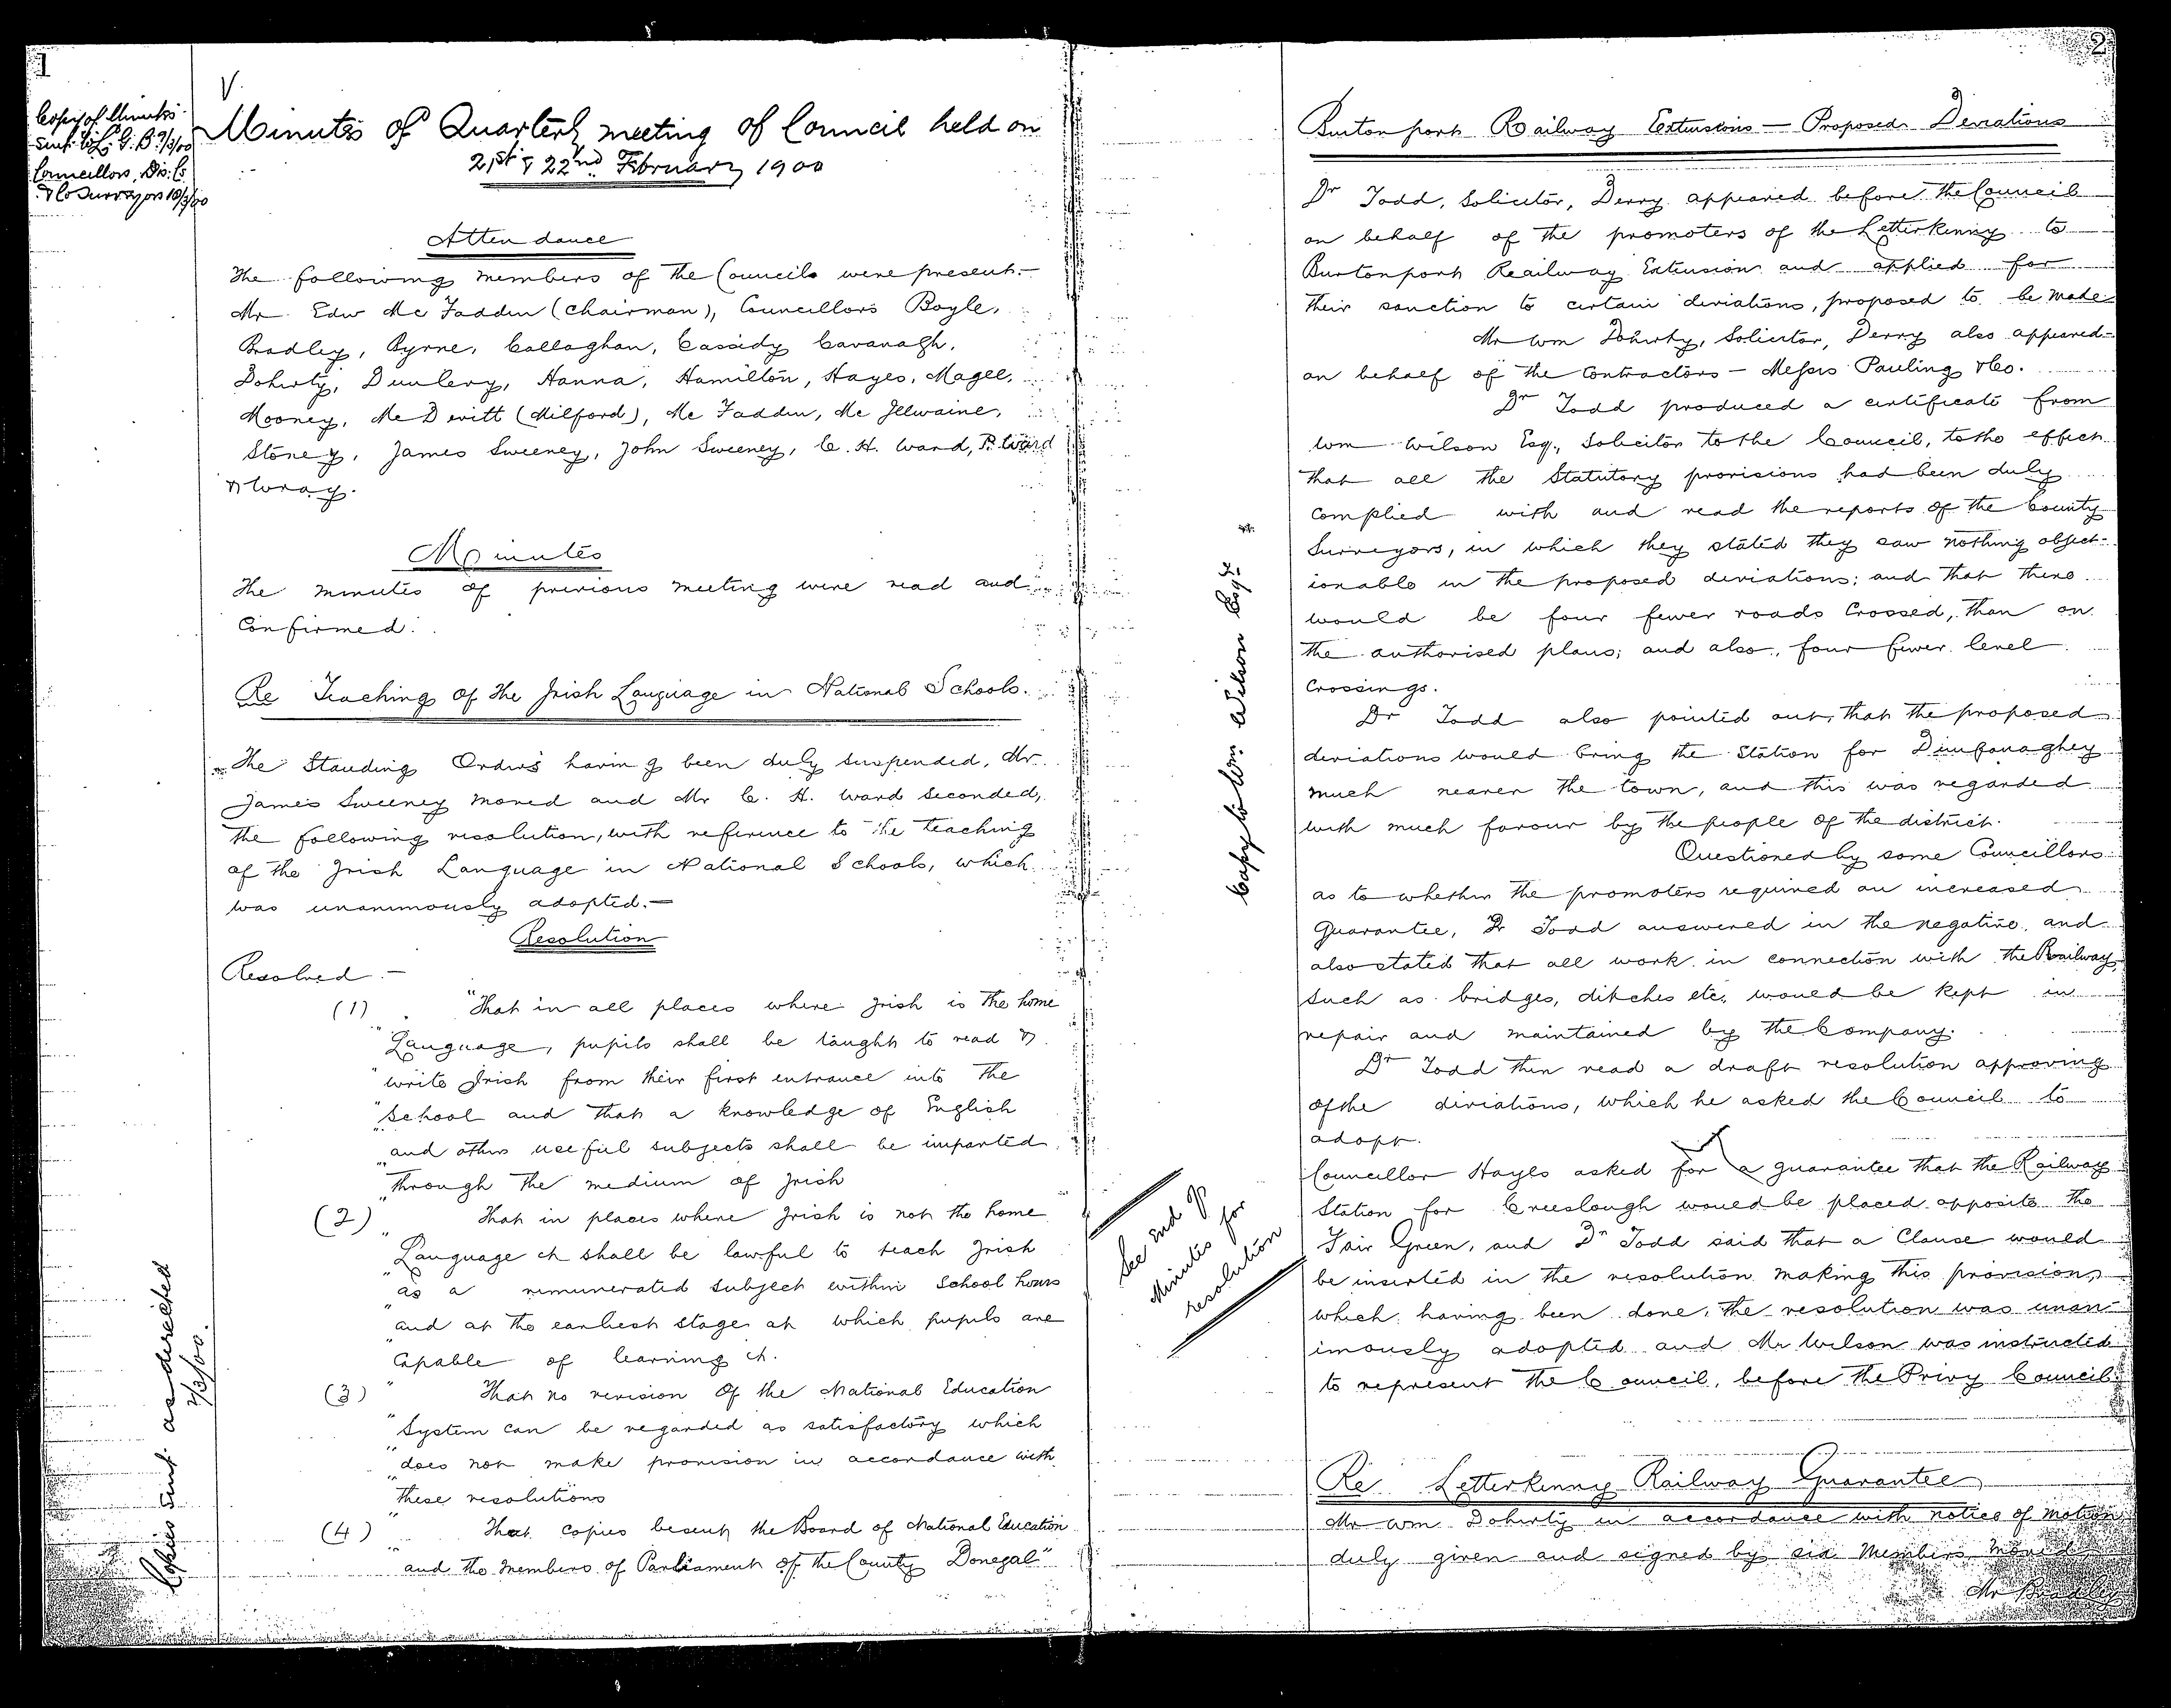 1
V.
Copy of Minutes
sent to L. G. B. 9/3/00
Councillors, Dis. Cs.
& Co Surveyors 10/3/00
Minutes of Quarterly meeting of Council held on
21st & 22nd February 1900
Attendance
The following members of the Councils were present:—
Mr. Edw Mc Fadden (Chairman), Councillors Boyle,
Bradley, Byrne, Callaghan, Cassidy Cavanagh,
Doherty, Dunlevy, Hanna, Hamilton, Hayes, Magee,
Mooney, Mc Devitt (Milford), Mc Fadden, Mc Ilwaine,
Stoney, James Sweeney, John Sweeney, C. H. Ward, P. Ward
& Wray.
Minutes
The minutes of previous meeting were read and
Confirmed.
Re Teaching of the Irish Language in National Schools.
The Standing Orders having been duly suspended, Mr.
James Sweeney moved and Mr C. H. Ward seconded,
the following resolution, with reference to the teaching
of the Irish Language in National Schools, which
was unanimously adopted.—
Resolution
Resolved.—
(1) "That in all places where Irish is the home
" Language, pupils shall be taught to read &
" write Irish from their first entrance into the
" School and that a knowledge of English
" and other useful subjects shall be imparted
" through the medium of Irish
(2) " That in places where Irish is not the home
" Language it shall be lawful to teach Irish
" as a remunerated subject within School hours
" and at the earliest stage at which pupils are
" Capable of learning it.
(3) " That no revision of the National Education
" System can be regarded as satisfactory which
" does not make provision in accordance with
" these resolutions
(4) " That copies be sent the Board of National Education
" and the members of Parliament of the County Donegal"
Copies sent as directed
2/3/00.
2
Burtonport Railway Extensions — Proposed Deviations
Dr Todd, Solicitor, Derry appeared before the Council
on behalf of the promoters of the Letterkenny to
Burtonport Reailway Extension and applied for
their sanction to certain deviations, proposed to be made
Mr Wm Doherty, Solicitor, Derry also appeared
on behalf of the Contractors — Messrs Pauling & Co.
Dr Todd produced a certificate from
Wm Wilson Esq., Solicitor to the Council, to the effect
that all the Statutory provisions had been duly
complied with and read the reports of the County
Surveyors, in which they stated they saw nothing object-
ionable in the proposed deviations; and that there
would be four fewer roads Crossed, than on
the authorised plans; and also, four fewer level
Crossings.
Dr Todd also pointed out, that the proposed
deviations would bring the Station for Dunfanaghey
much nearer the town, and this was regarded
with much favour by the people of the district.
Questioned by some Councillors
as to whether the promoters required an increased
Guarantee, Dr Todd answered in the negative, and
also stated that all work in connection with the Railway
such as bridges, ditches etc, would be kept in
repair and maintained by the Company.
Dr Todd then read a draft resolution approving
of the diviations, which he asked the Council to
adopt.
Councillor Hayes asked for a guarantee that the Railway
Station for Creeslough would be placed opposite the
Fair Green, and Dr Todd said that a Clause would
be inserted in the resolution making this provision,
which having been done, the resolution was unan-
imously adopted and Mr Wilson was instructed
to represent the Council, before the Privy Council
Copy to Wm. Wilson Esqre
See end of
Minutes for
resolution
Re Letterkenny Railway Guarantee
Mr Wm Doherty in accordance with notice of motion
duly given and signed by six Members moved
Mr Bradley